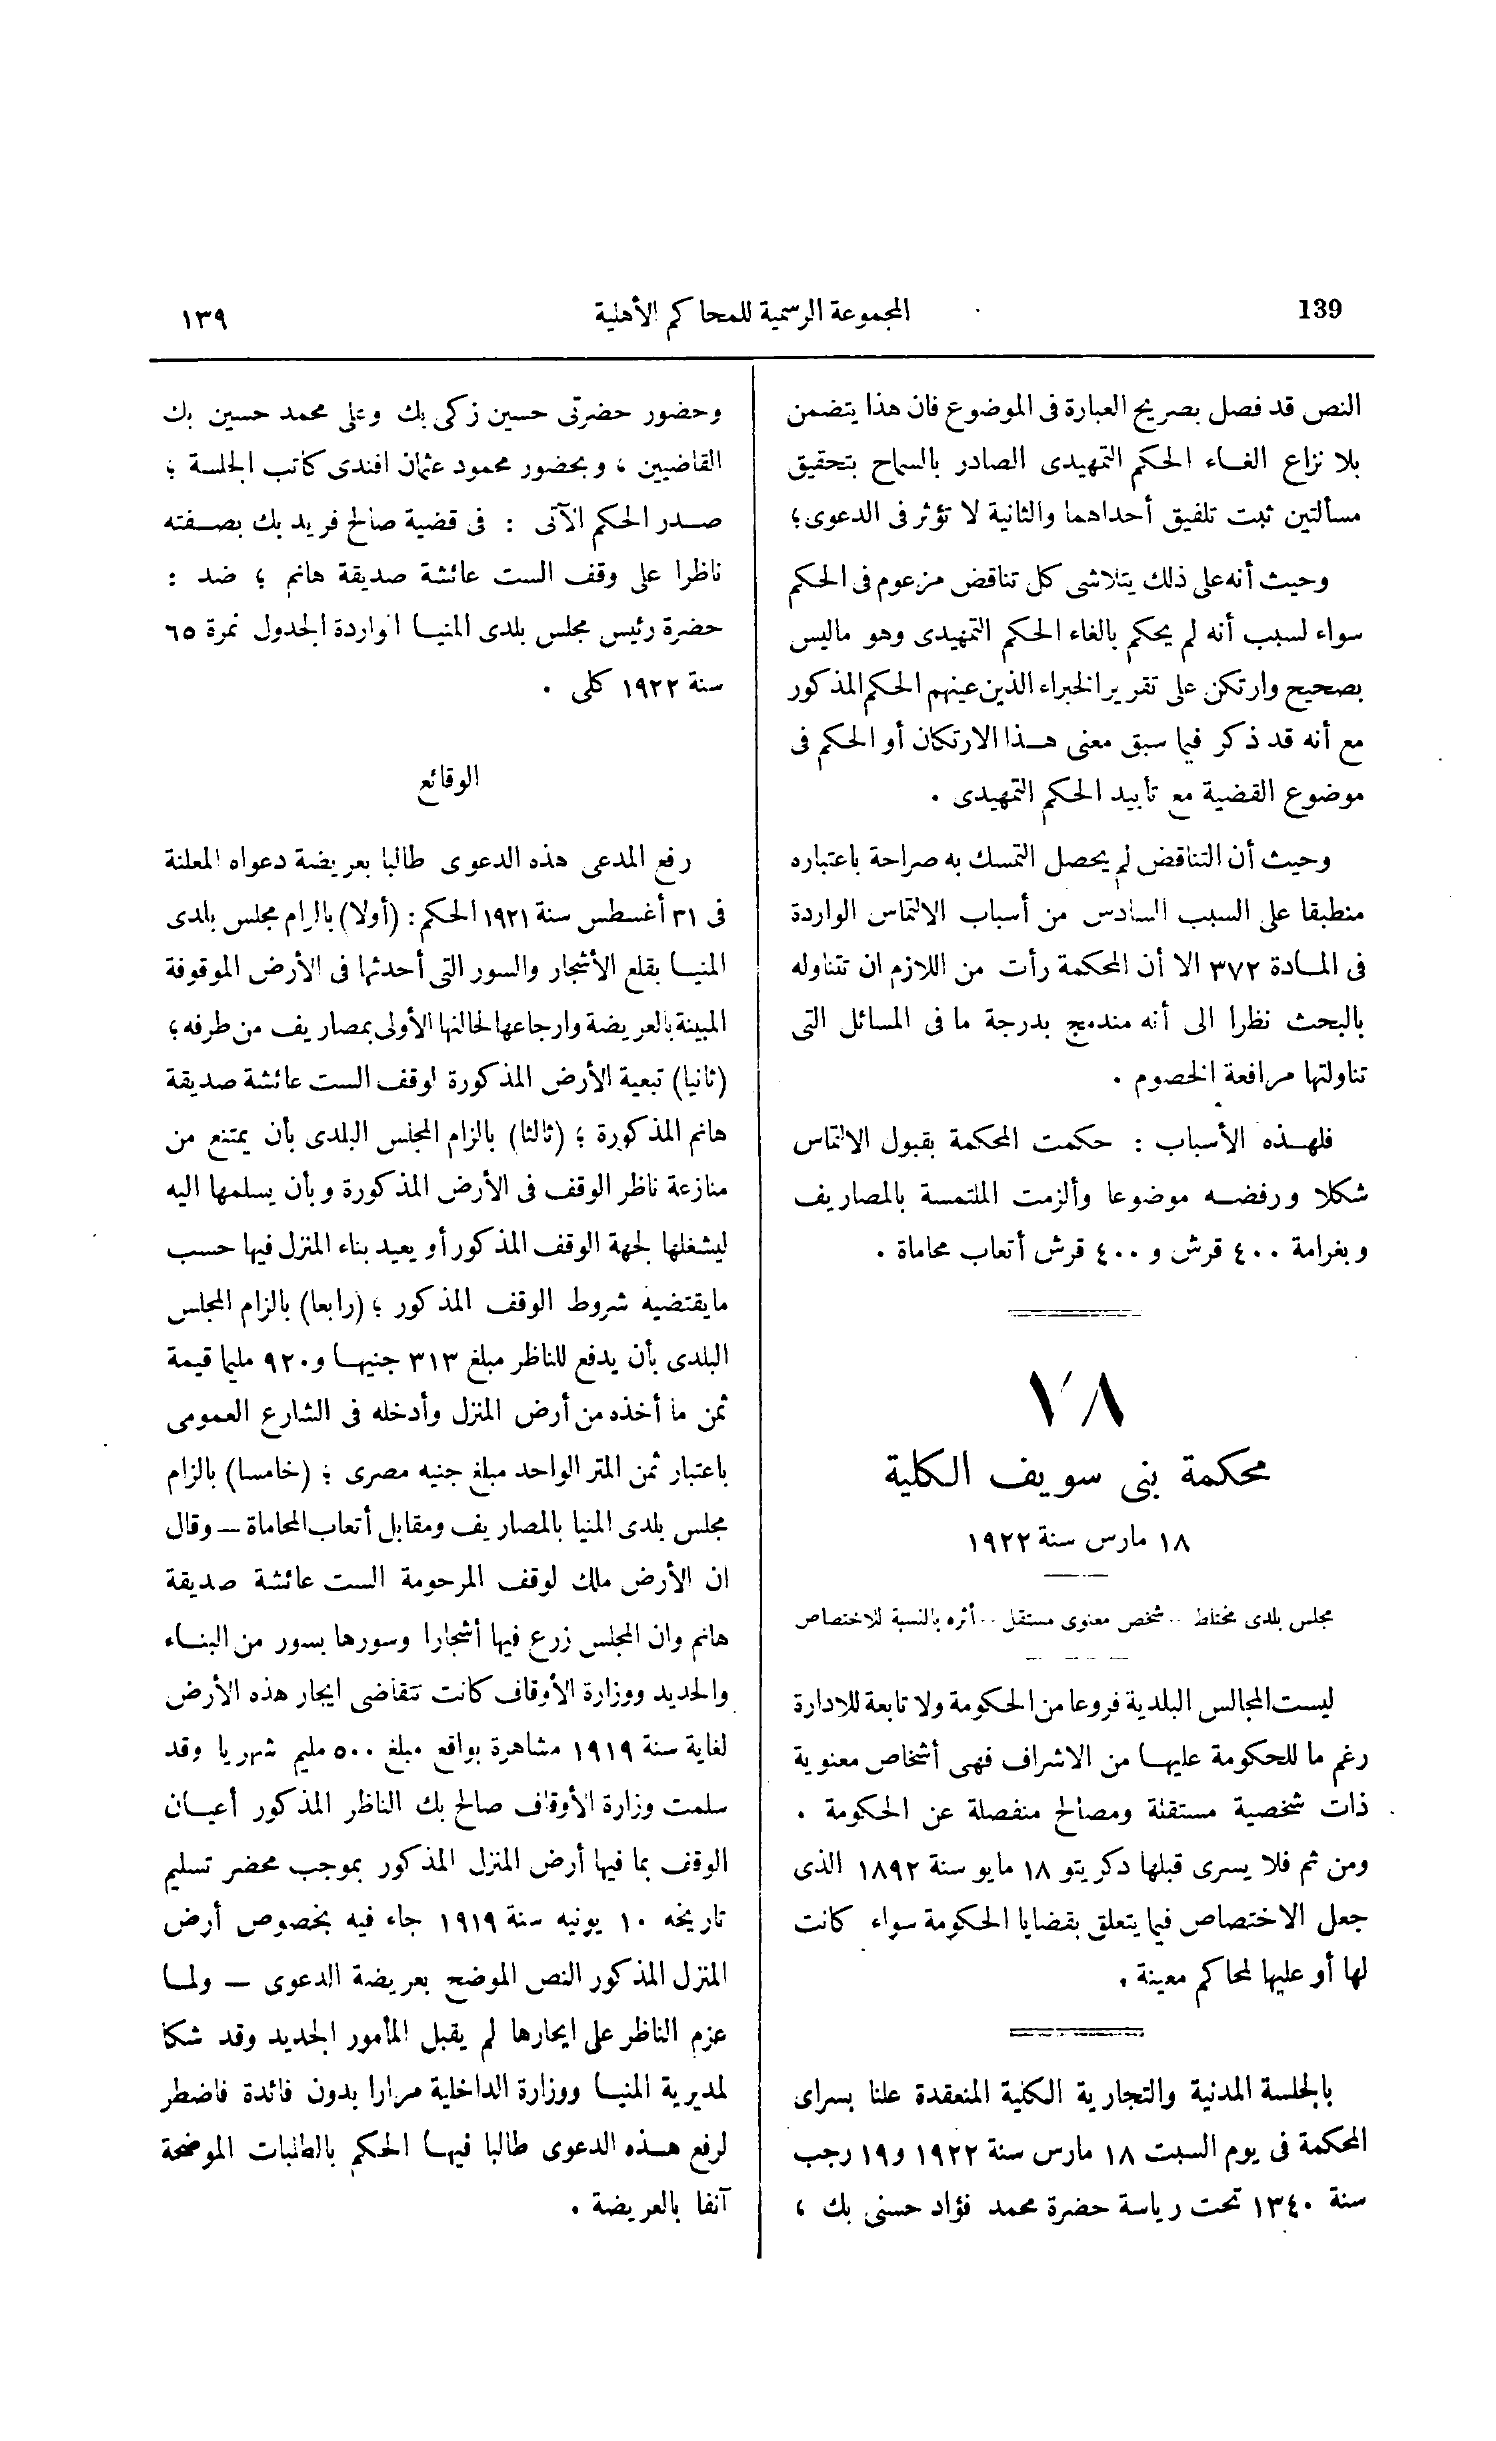 139
المجموعة الرسمية للمحاكم الأهلية
١٣٩
النص قد فصل بصريح العبارة فى الموضوع فان هذا يتضمن
بلا نزاع الغاء الحكم التمهيدى الصادر بالسماح بتحقيق
مسألتين ثبت تلفيق أحداهما والثانية لا تؤثر فى الدعوى؛
وحيث أنه على ذلك يتلاشى كل تناقض مزعوم فى الحكم
سواء لسبب أنه لم يحكم بالغاء الحكم التمهيدى وهو ماليس
بصحيح وارتكن على تقرير الخبراء الذين عينهم الحكم المذكور
مع أنه قد ذكر فيما سبق معنى هذا الارتكان أو الحكم فى
موضوع القضية مع تأييد الحكم التمهيدى .
وحيث أن التناقض لم يحصل التمسك به صراحة باعتباره
منطبقا على السبب السادس من أسباب الالتماس الواردة
فى المادة ٣٧٢ الا أن المحكمة رأت من اللازم ان تتناوله
بالبحث نظرا الى أنه مندمج بدرجة ما فى المسائل التى
تناولتها مرافعة الخصوم .
فلهذه الأسباب : حكمت المحكمة بقبول الالتماس
شكلا ورفضه موضوعا وألزمت الملتمسة بالمصاريف
وبغرامة ٤٠٠ قرش و ٤٠٠ قرش أتعاب محاماة .
٧٨
محكمة بنى سويف الكلية
١٨ مارس سنة ١٩٢٢
مجلس بلدى مختلط .. شخص معنوى مستقل .. أثره بالنسبة للاختصاص
ليست المجالس البلدية فروعا من الحكومة ولا تابعة للادارة
رغم ما للحكومة عليها من الاشراف فهى أشخاص معنوية
ذات شخصية مستقلة ومصالح منفصلة عن الحكومة .
ومن ثم فلا يسرى قبلها دكريتو ١٨ مايو سنة ١٨٩٢ الذى
جعل الاختصاص فيما يتعلق بقضايا الحكومة سواء كانت
لها أو عليها لمحاكم معينة .
بالجلسة المدنية والتجارية الكلية المنعقدة علنا بسراى
المحكمة فى يوم السبت ١٨ مارس سنة ١٩٢٢ و١٩ رجب
سنة ١٣٤٠ تحت رياسة حضرة محمد فؤاد حسنى بك ،
وحضور حضرتى حسين زكى بك وعلى محمد حسين بك
القاضيين ، وبحضور محمود عثمان افندى كاتب الجلسة ؛
صدر الحكم الآتى : فى قضية صالح فريد بك بصفته
ناظرا على وقف الست عائشة صديقة هانم ؛ ضد :
حضرة رئيس مجلس بلدى المنيا الواردة الجدول نمرة ٦٥
سنة ١٩٢٢ كلى .
الوقائع
رفع المدعى هذه الدعوى طالبا بعريضة دعواه المعلنة
فى ٣١ أغسطس سنة ١٩٢١ الحكم : (أولا) بالزام مجلس بلدى
المنيا بقلع الأشجار والسور التى أحدثها فى الأرض الموقوفة
المبينة بالعريضة وارجاعها لحالتها الأولى بمصاريف من طرفه؛
(ثانيا) تبعية الأرض المذكورة لوقف الست عائشة صديقة
هانم المذكورة ؛ (ثالثا) بالزام المجلس البلدى بأن يمتنع من
منازعة ناظر الوقف فى الأرض المذكورة وبأن يسلمها اليه
ليشغلها لجهة الوقف المذكور أو يعيد بناء المنزل فيها حسب
مايقتضيه شروط الوقف المذكور ؛ (رابعا) بالزام المجلس
البلدى بأن يدفع للناظر مبلغ ٣١٣ جنيها و٩٢٠ مليما قيمة
ثمن ما أخذه من أرض المنزل وأدخله فى الشارع العمومى
باعتبار ثمن المتر الواحد مبلغ جنيه مصرى ؛ (خامسا) بالزام
مجلس بلدى المنيا بالمصاريف ومقابل أتعاب المحاماة – وقال
ان الأرض ملك لوقف المرحومة الست عائشة صديقة
هانم وان المجلس زرع فيها أشجارا وسورها بسور من البناء
والحديد ووزارة الأوقاف كانت تتقاضى ايجار هذه الأرض
لغاية سنة ١٩١٩ مشاهرة بواقع مبلغ ٥٠٠ مليم شهريا وقد
سلمت وزارة الأوقاف صالح بك الناظر المذكور أعيان
الوقف بما فيها أرض المنزل المذكور بموجب محضر تسليم
تاريخه ١٠ يونيه سنة ١٩١٩ جاء فيه بخصوص أرض
المنزل المذكور النص الموضح بعريضة الدعوى – ولما
عزم الناظر على ايجارها لم يقبل المأمور الجديد وقد شكا
لمديرية المنيا ووزارة الداخلية مرارا بدون فائدة فاضطر
لرفع هذه الدعوى طالبا فيها الحكم بالطلبات الموضحة
آنفا بالعريضة .